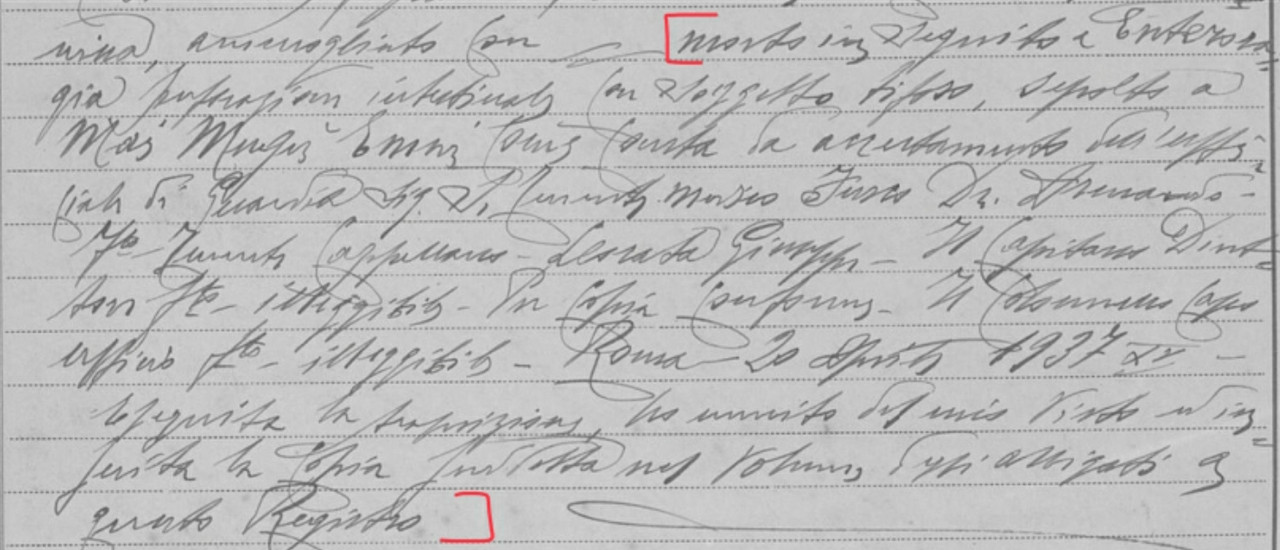 vino, ammogliato con morto in seguito a Enterora=
gia perforazioni intestinali in soggetto tifoso, sepolto a
Mai come risulta da accertamento dell'uffi=
ciale di Guardia Sig. S. Tenente medico Dr. Armando -
Fto Tenente Cappellano - Giuseppe - Il Capitano Diret=
tore Fto - illeggibile - Per Copia Conforme - Il Colonnello Capo
ufficio Fto - illeggibile - Roma 20 Aprile 1937 XV -
Eseguita la trascrizione, ho munito del mio Visto ed in=
serita la Copia suddetta nel Volume degli allegati a
questo Registro